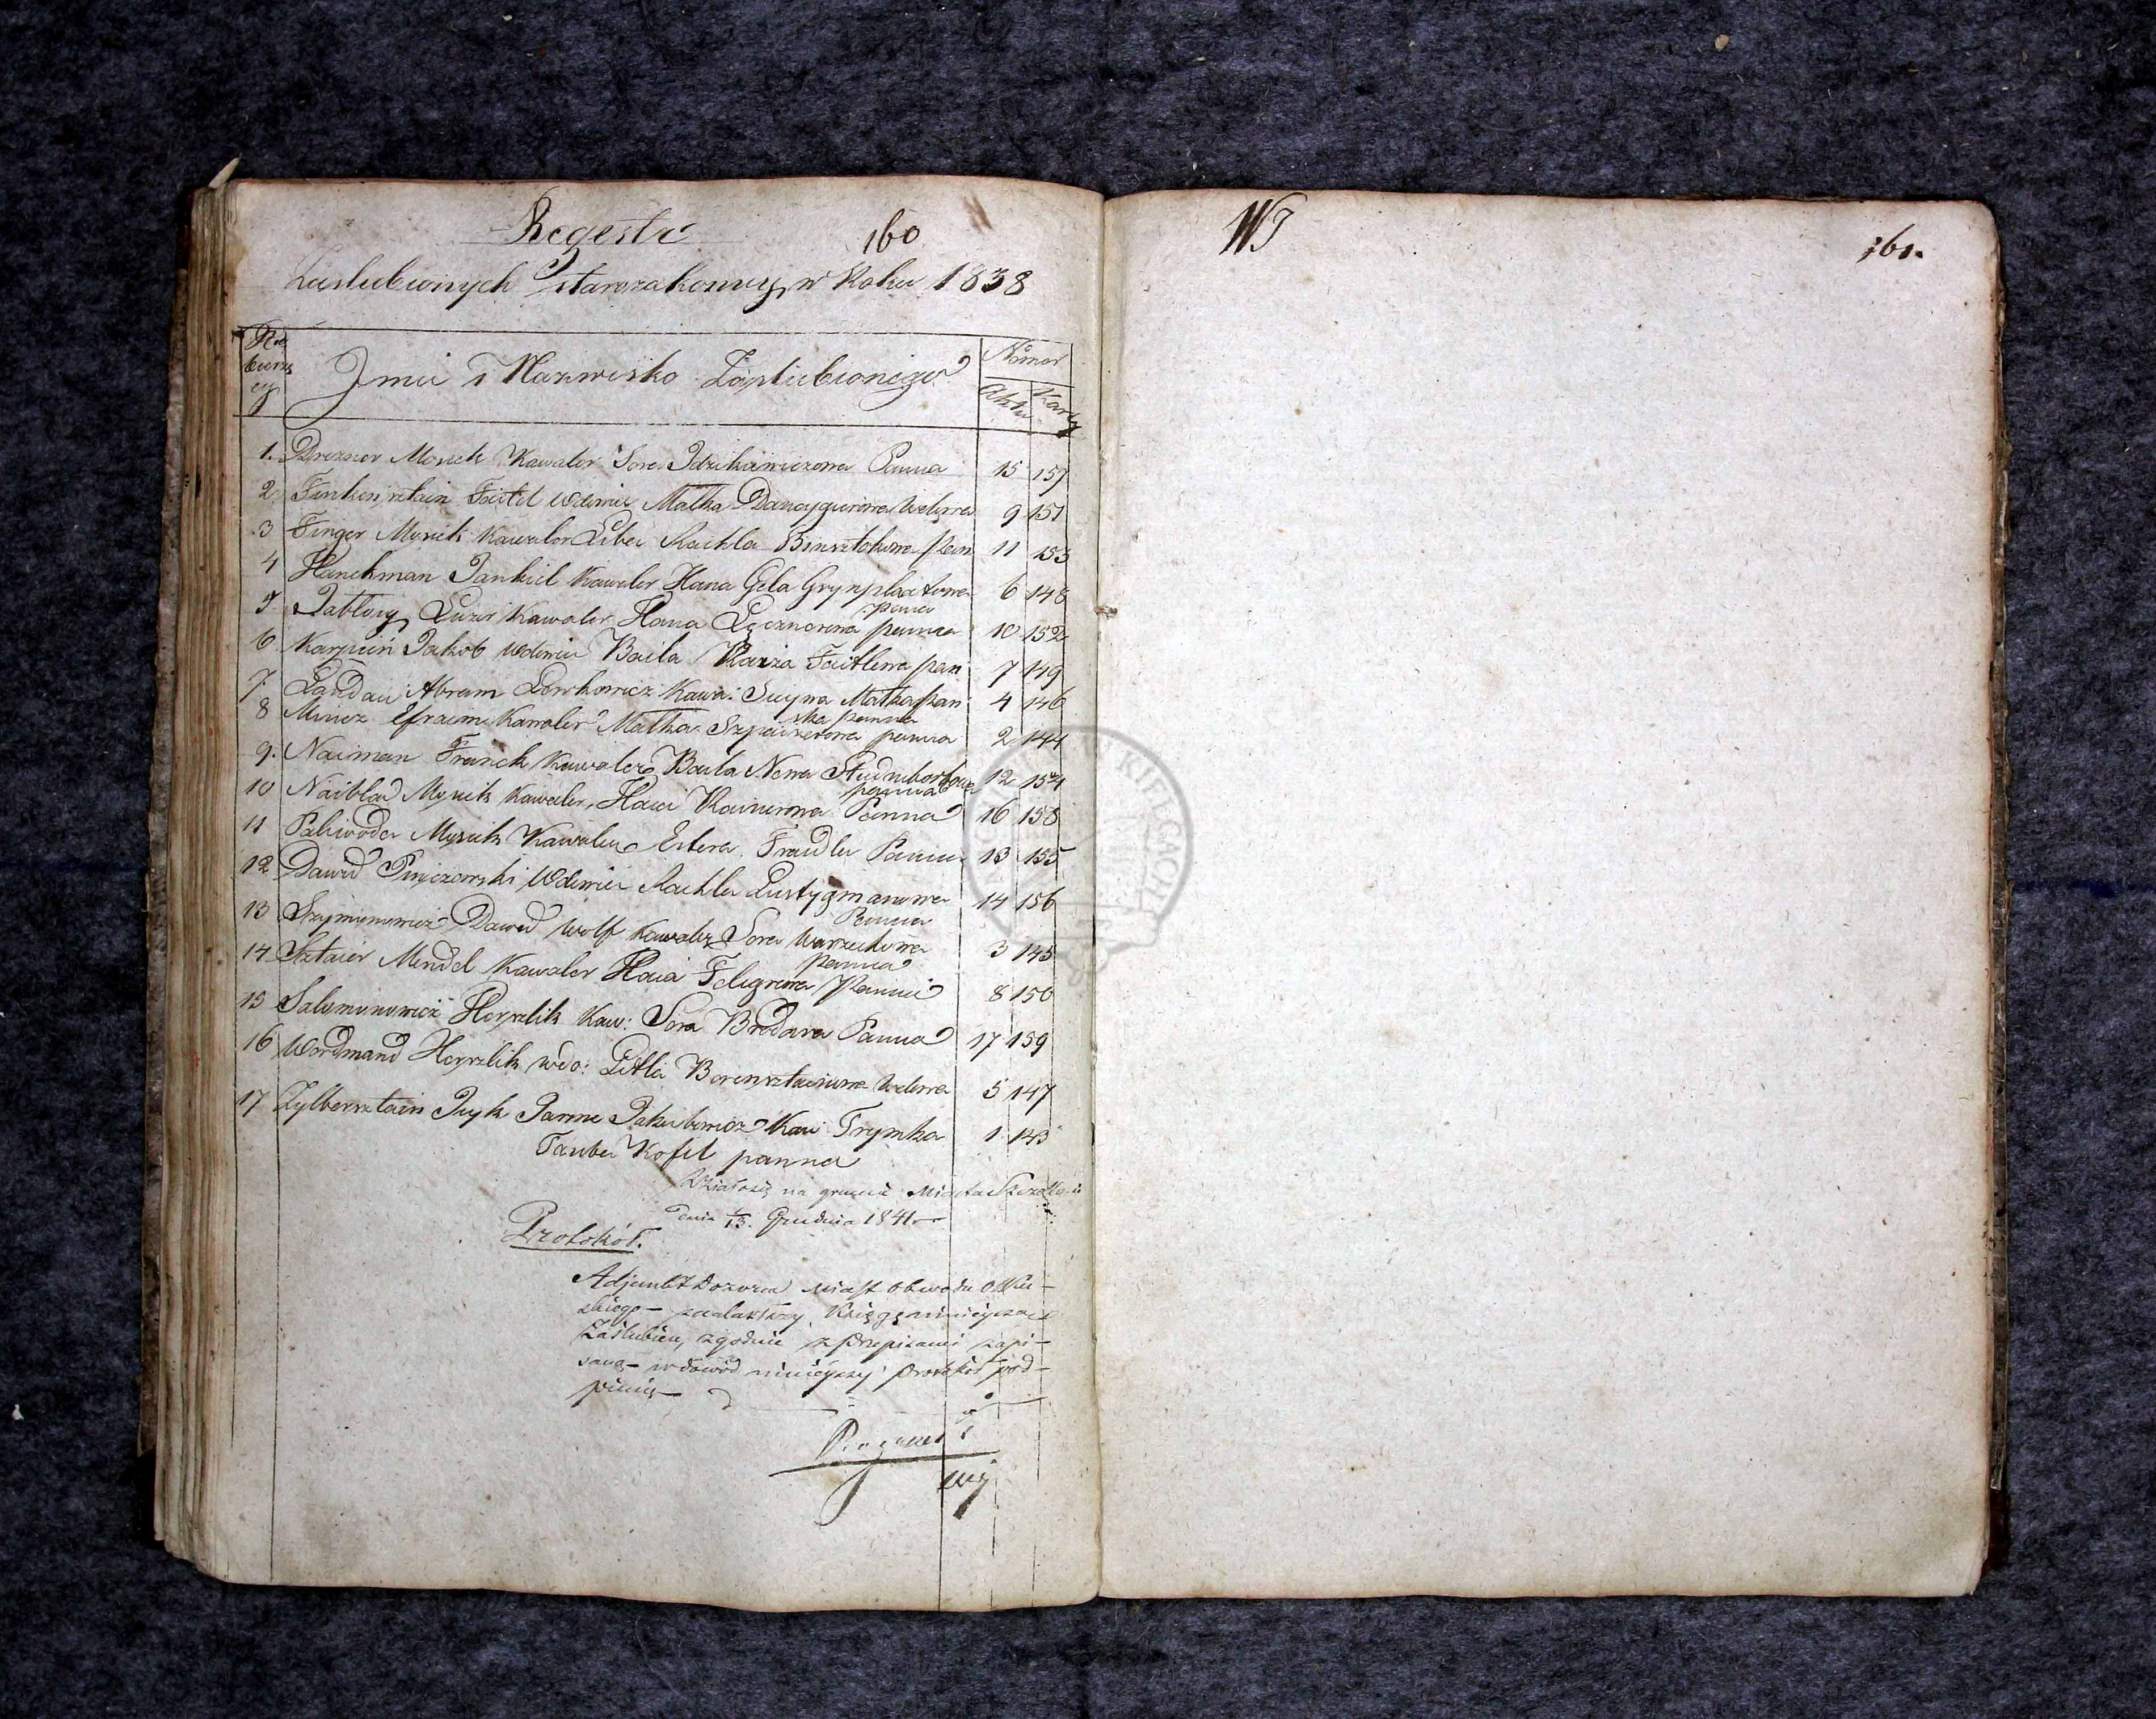 Regestr 160
Zaslubionych Starozakonnych w Roku 1838
Imie i Nazwisko Zaslubionego
Nomer
Aktu Karty
1. Drezner Mosiek Kawaler Sora Panna 15 157
2 Finkinsztain Faitel wdowiec Matka Dancygierowa Wdowa 9 151
3 Finger Mosiek Kawaler Liba Rachla Binsztokowa Pan 11 153
4 Hanchman Jankiel Kawaler Hana Gela Grynplactowa 6 148
panna
5 Luzer Kawaler Hana Lęcznerowa panna 10 152
6 Karpein Jakob wdowiec Baila Raiza Faitlowa pan 7 149
7 Landau Abram Lewkowicz Kawa: Matka pan 4 146
ska panna
8 Mincz Efraim Kawaler Matka panna 2 144
9. Naiman Franek Kawaler Baila Newa 12 154
panna
10 Naiblad Mosiek Kawaler, Haia Panna 16 158
11 Paliwoda Mosiek Kawaler Estera Fraudla Panna 13 155
12 Dawid Pinczowski Wdowiec Rachla Lustygmanowa 14 156
Panna
13 Szymonowicz Dawid Wolf Kawaler Sora 3 145
panna
14 Sztaier Mendel Kawaler Haia Feligrowa Panna 8 150
15 Salomonowicz Herszlik Kaw: Sora Brodowa Panna 17 159
16 Wordmand Herszlik wdo: Gitla Borensztainowa Wdowa 5 147
17 Zylbersztain Icyk Jakubowicz Kaw Frymka 1 143
Tauba Kofel panna
Działo się na gruncie Miasta
dnia 1/13. Grudnia 1841
Protokół.
Adjunkt Dozorca Miast Obwodu Olku-
skiego - znalazłszy Księgę niniejszą
Zaślubień, zgodnie z Przepisami zapi-
saną - w dowód niniejszy Protokół pod-
pisuię
WJ 161.